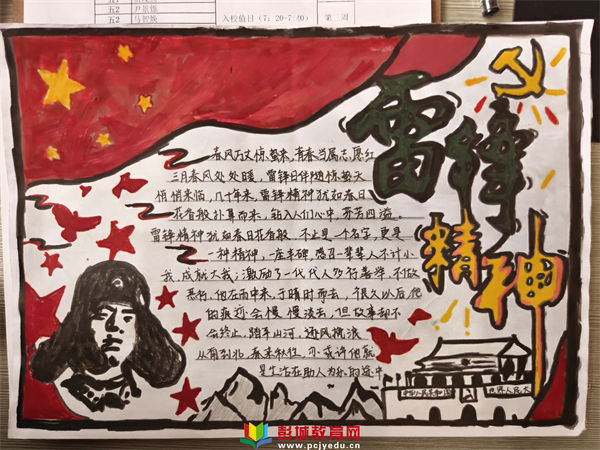 五2 尹景铄
五2 马智焕
入校值日(7:20-7:40)
第三周
雷锋
精神
春风万丈惊蛰来,青春当属志愿红
三月春风处处暖,雷锋日伴随惊蛰天
悄悄来临,几十年来,雷锋精神犹如春日
花香般扑鼻而来,钻入人们心中,芬芳四溢。
雷锋精神犹如春日花香般 不止是一个名字,更是
一种精神,一座丰碑,感召一辈辈人不计小
我,成就大我;激励了一代代人力行善举,不做
恶行,他在雨中来,于晴时而去,很久以后,他
的痕迹会慢慢淡去,但故事却不
会终止,踏车山河,逐风携浪
从南到北,春来秋往,亦或许他就
是生活在助人为乐的途中
中华人民共和国
世界人民大
彭城教育网
www.pcjyedu.cn